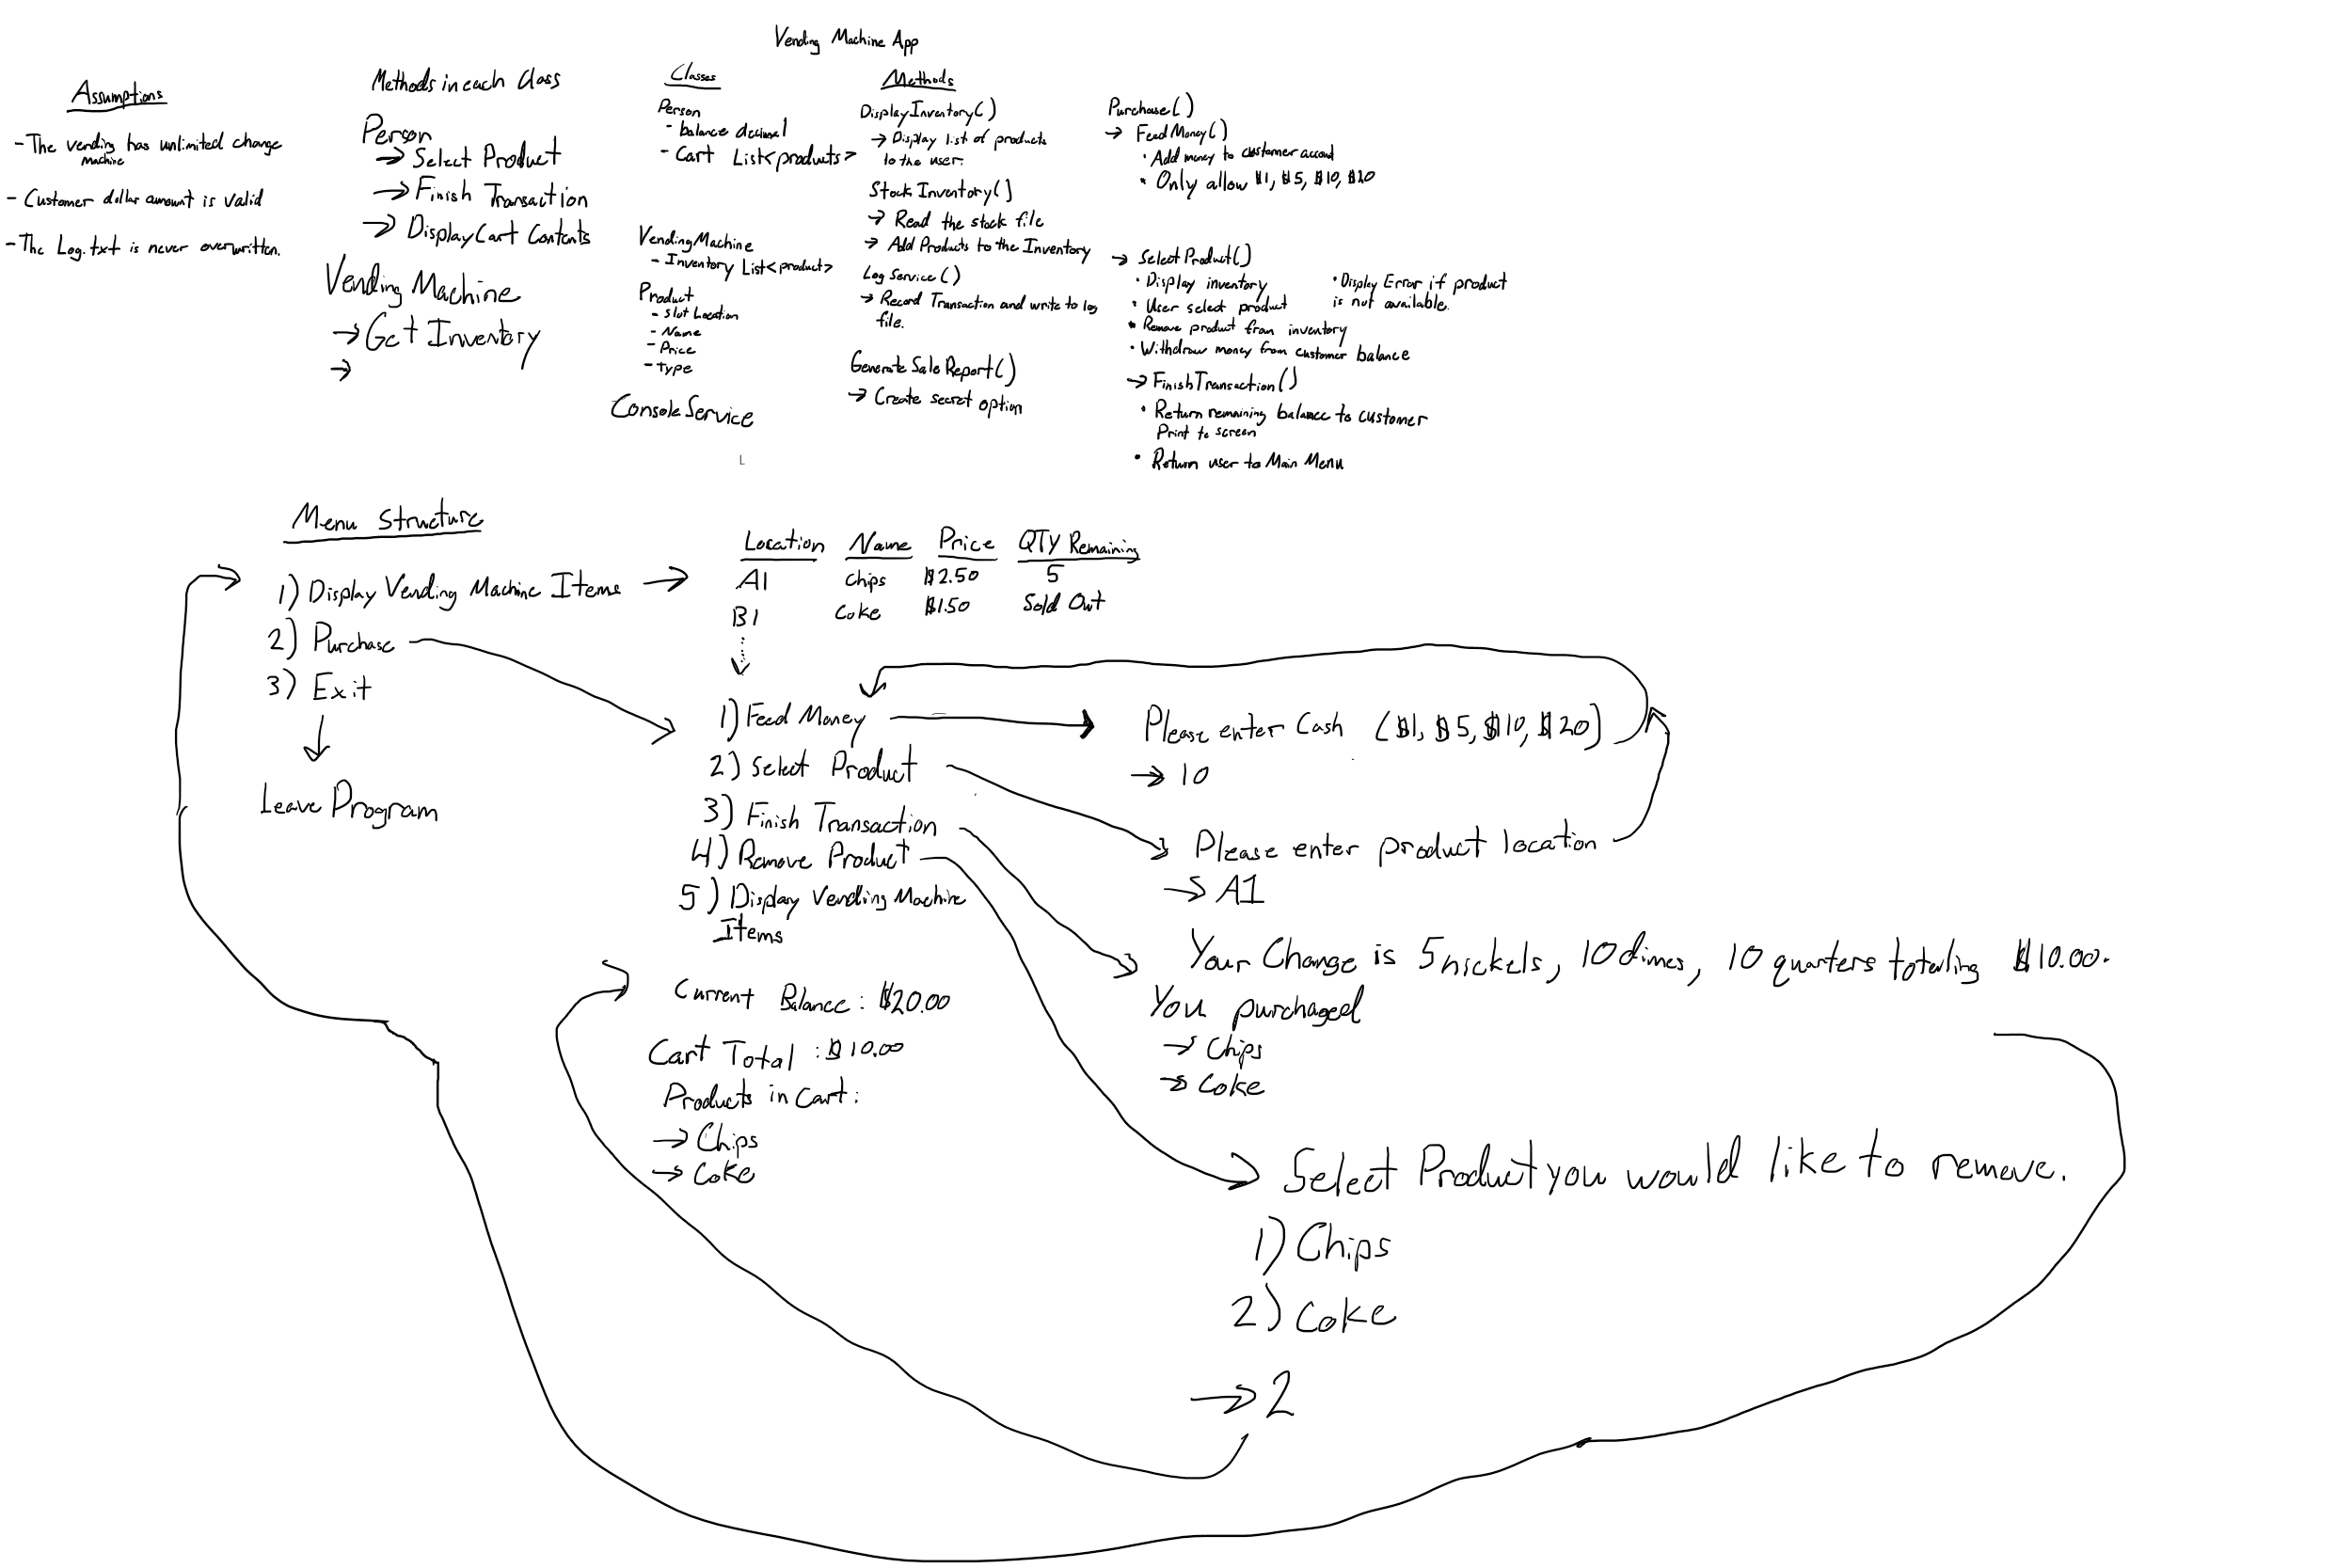 Vending Machine App
Assumptions
- The vending has unlimited change
machine
- Customer dollar amount is valid
- The Log.txt is never overwritten.
Methods in each Class
Person
→ Select Product
→ Finish Transaction
→ Display Cart Contents
Vending Machine
→ Get Inventory
→
Classes
Person
- balance decimal
- Cart List<products>
VendingMachine
- Inventory List<product>
Product
- Slot Location
- Name
- Price
- Type
Console Service
Methods
DisplayInventory()
→ Display list of products
to the user.
Stock Inventory()
→ Read the stock file
→ Add Products to the Inventory
Log Service()
→ Record Transaction and write to log
file.
Generate Sale Report()
→ Create secret option
Purchase()
→ FeedMoney()
• Add money to customer account
• Only allow $1, $5, $10, $20
→ Select Product()
• Display inventory
• User select product
• Remove product from inventory
• Withdraw money from customer balance
• Display Error if product
is not available.
→ FinishTransaction()
• Return remaining balance to customer
Print to screen
• Return user to Main Menu
Menu Structure
1) Display Vending Machine Items →
2) Purchase
3) Exit
Leave Program
Location Name Price QTY Remaining
A1 Chips $2.50 5
B1 Coke $1.50 Sold Out
1) Feed Money
2) Select Product
3) Finish Transaction
4) Remove Product
5) Display Vending Machine
Items
Current Balance : $20.00
Cart Total : $10.00
Products in Cart :
→ Chips
→ Coke
Please enter Cash ($1, $5, $10, $20)
→ 10
Please enter product location
→ A1
Your Change is 5 nickels, 10 dimes, 10 quarters totaling $10.00.
You purchaged
→ Chips
→ Coke
Select Product you would like to remove.
1) Chips
2) Coke
→ 2